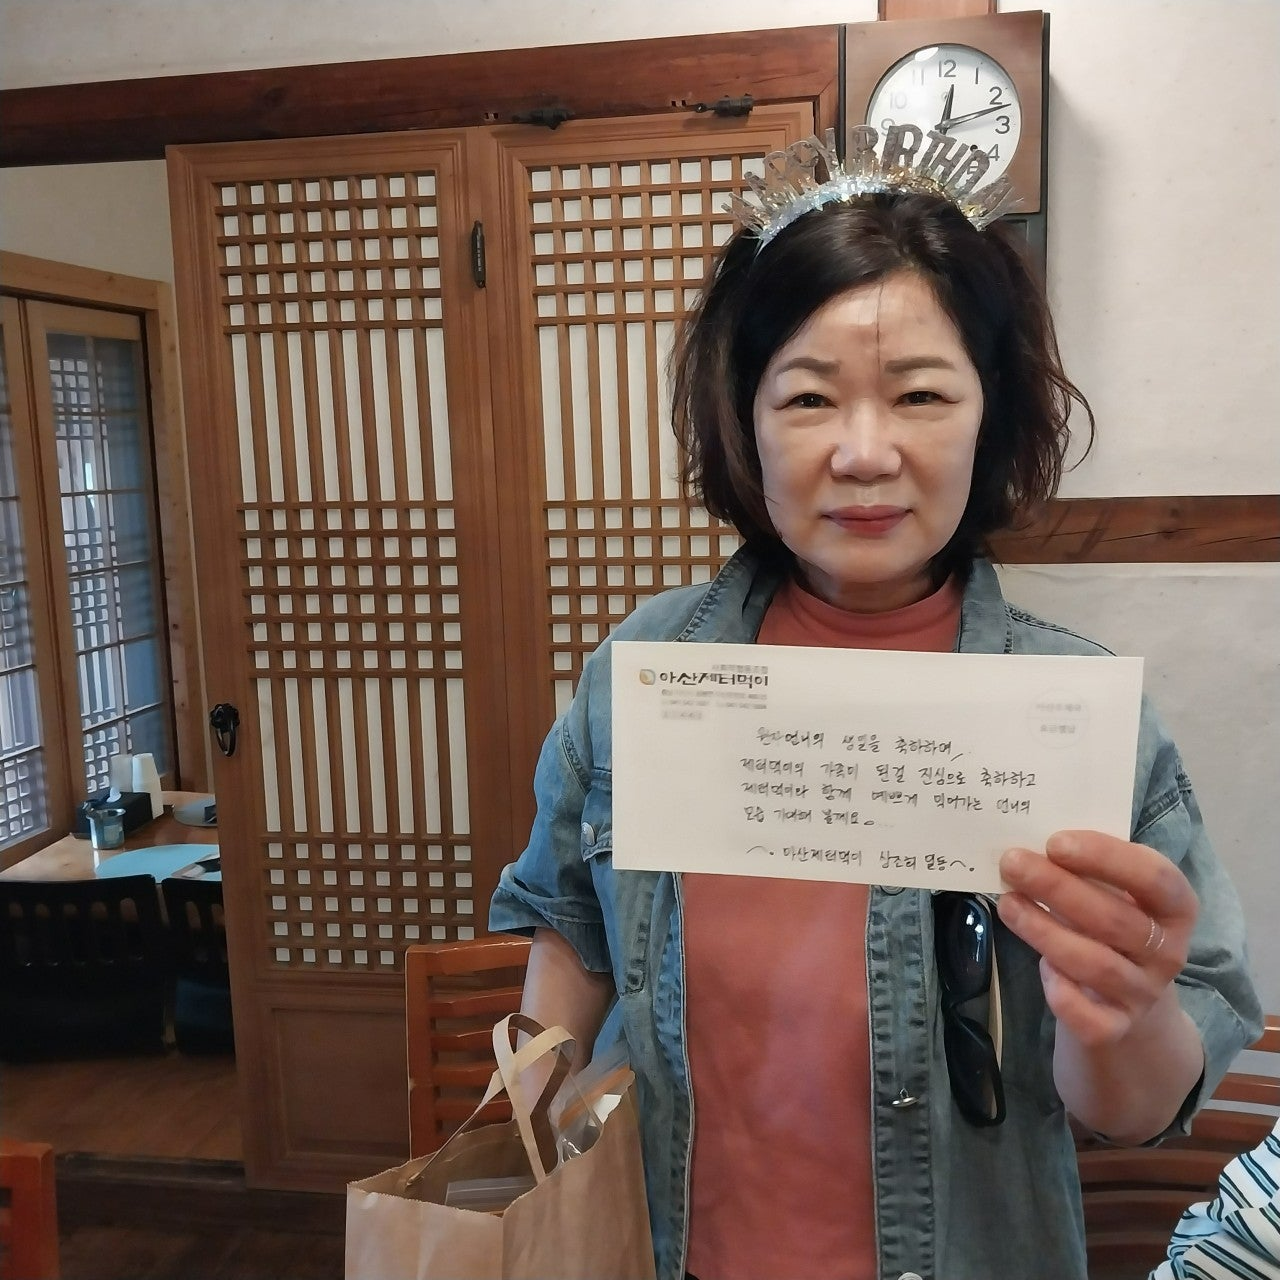 12
1
2
3
4
9
10
11
BIRTHD
사회적협동조합
아산제터먹이
원자언니의 생일을 축하하며,
제터먹이의 가족이 된걸 진심으로 축하하고
제터먹이와 함께 예쁘게 익어가는 언니의
모습 기대해 볼께요。...
아산제터먹이 상조회 일동